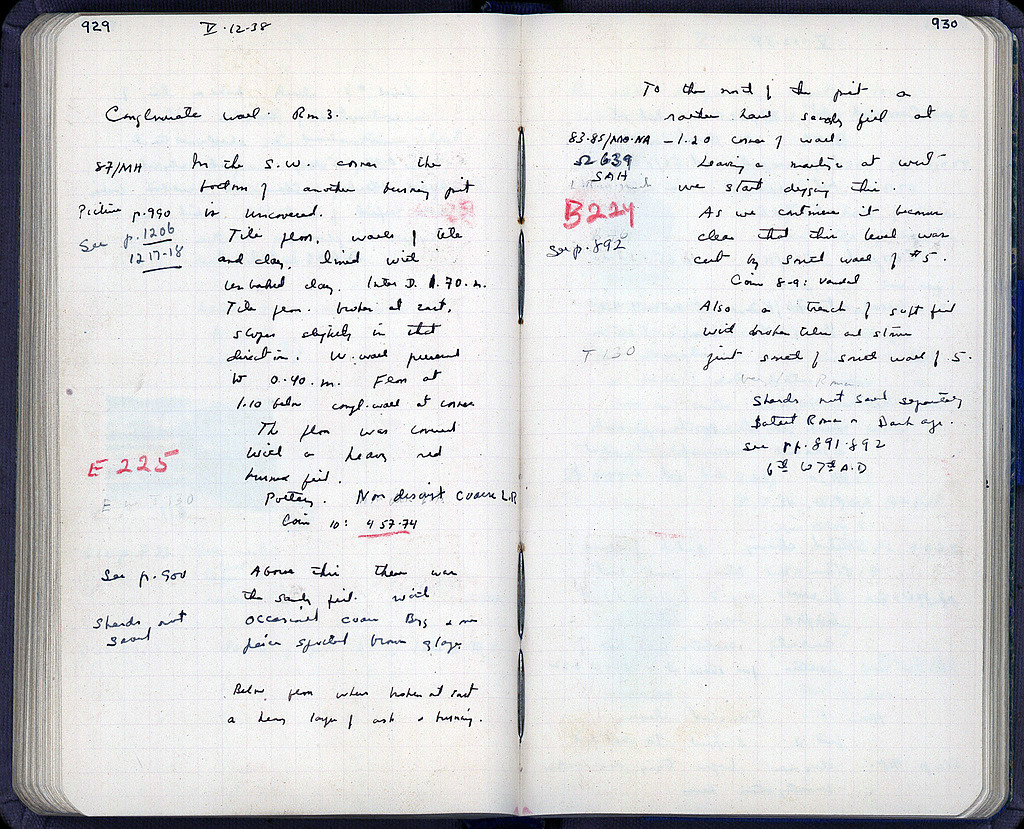 929
V·12·38
Conglomerate wall. Rm 3.
87/MH
In the S.W. corner the
bottom of another burning pit
Picture p.990
is uncovered.
See p.1206
1217-18
Tile floor, walls of tile
and clay, lined with
unbaked clay. Inter D. 1.70 m.
Tile floor broken at east,
slopes slightly in that
direction. W. wall preserved
to 0.40 m. Floor at
1.10 below congl. wall at corner
The floor was covered
with a heavy red
burned fill.
E 225
T 130
Pottery. Non descript coarse L.R.
Coin 10: 457-74
See p. 900
Above this there was
the sandy fill with
Sherds not
saved
occasional coarse Byz + one
piece spotted brown glaze
Below floor where broken at east
a heavy layer of ash + burning.
930
To the north of the pit a
rather hard sandy fill at
83-85/MO-NA
-1.20 corner of wall.
Ω 639
SAH
Leaving a martyr at west
we start digging this.
B224
As we continue it became
clear that this level was
See p.892
cut by south wall of #5.
Coin 8-9: Vandal
Also a trench of soft fill
with broken tiles and stone
T 130
just south of south wall of 5.
Roman
Sherds not saved separately
Latest Roman Dark age.
See pp. 891-892
6th to 7th A.D